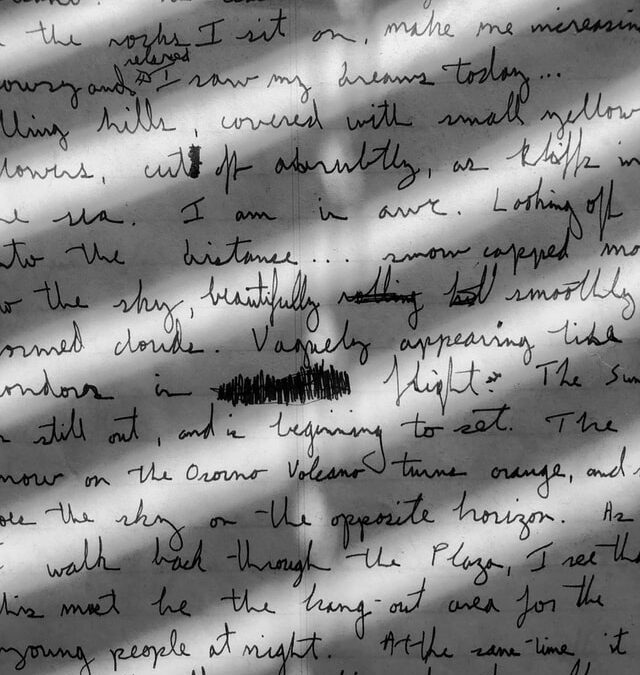 the rocks I sit on, make me increasin
relaxed
owsy and I saw my dreams today...
lling hills, covered with small yellow
lowers, cut off abruptly, as kliffs in
he sea. I am in awe. Looking off
nto the distance... snow capped mo
to the sky, beautifully rolling smoothly
ormed clouds. Vaguely appearing like
ondors in flight. The Sun
is still out, and is beginning to set. The
now on the Osorno Volcano turns orange, and
oes the sky on the opposite horizon. As
I walk back through the Plaza, I see tha
his must be the hang-out area for the
young people at night. At the same-time it